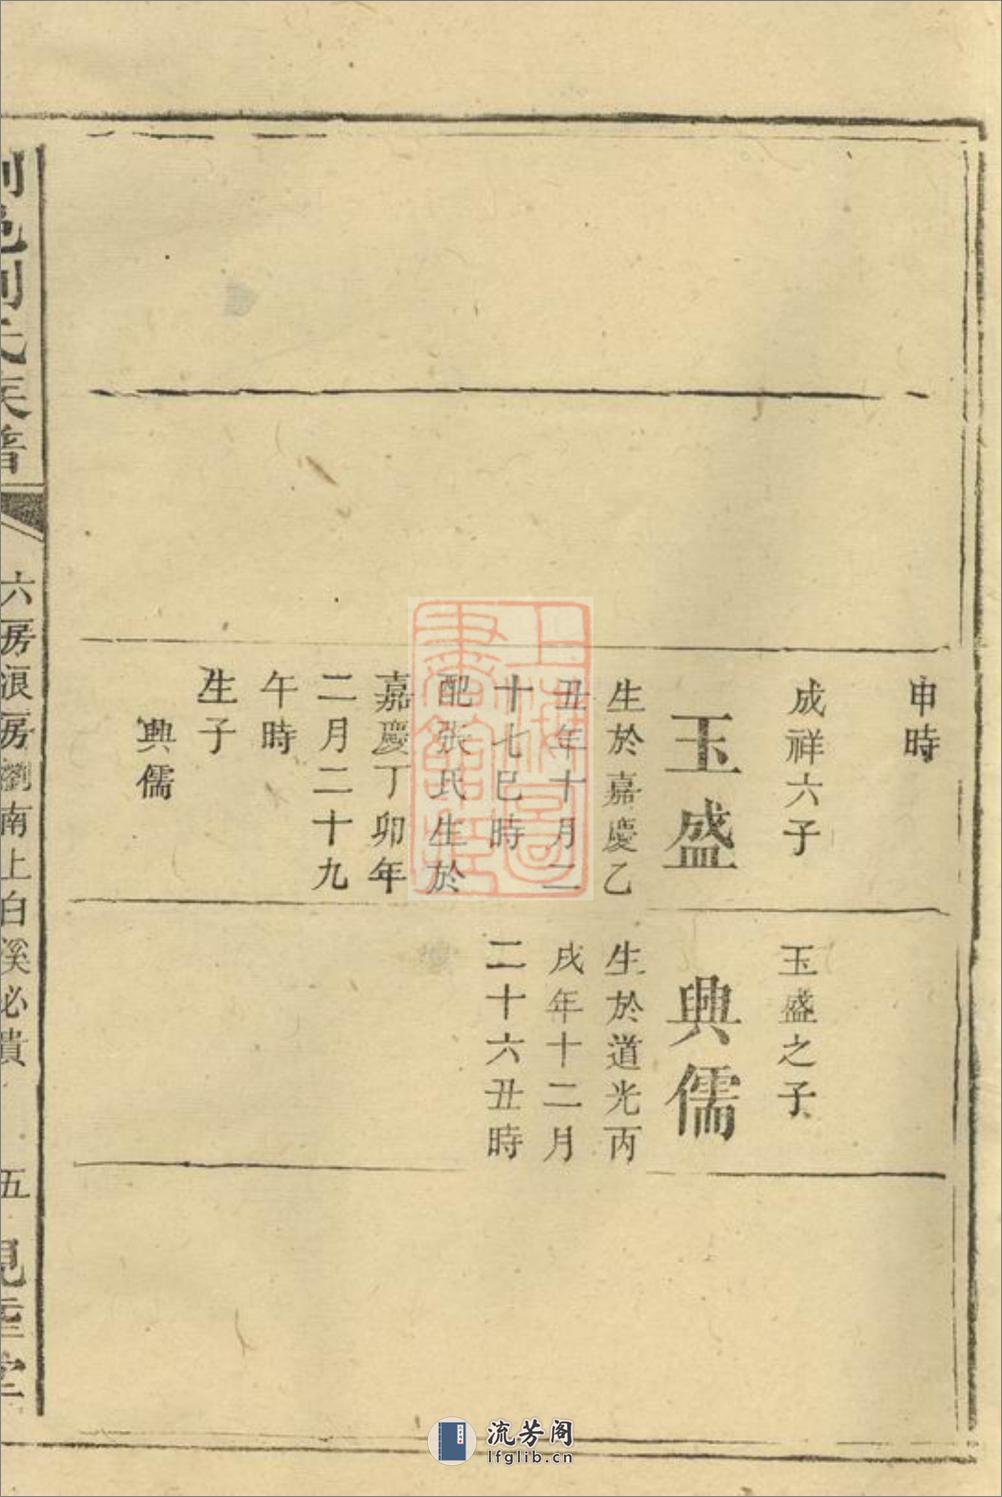 申時
成祥六子
玉盛
生於嘉慶乙
丑年十月二
十七巳時
配張氏生於
嘉慶丁卯年
二月二十九
午時
生子
興儒
玉盛之子
興儒
生於道光丙
戌年十二月
二十六丑時
邑劉氏族譜
六房浪房瀏南上白溪必貴
五
上海圖書館藏
流芳阁
lfglib.cn